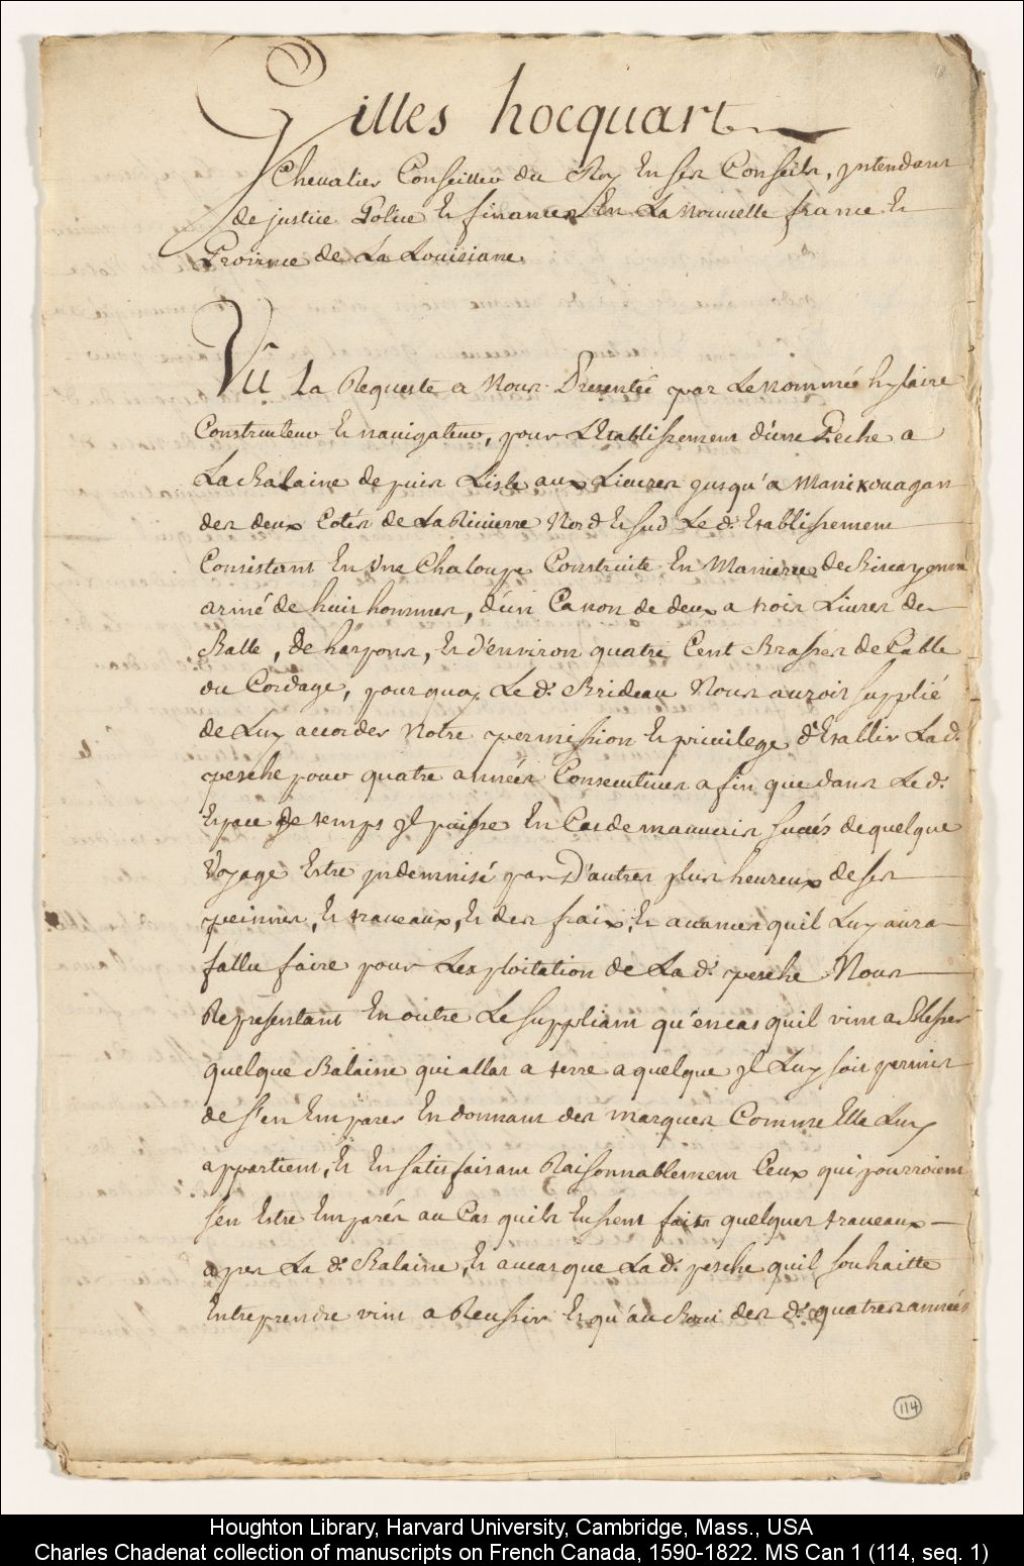 Gilles hocquart
Chevalier Conseiller du Roy En ses Conseils, yntendant
de justice Police Et finances En La Nouvelle france Et
Province de La Louisiane.
Vû La Requeste a Nous Présentée par Le nommé hylaire
Constructeur Et navigateur, pour L'Etablissement d'une Peche a
La Balaine depuis L'isle aux Lieures jusqu'a Manixouagan
des deux Cotés de La Riuierre Nord Et Sud Le d. Etablissement
Consistant En Une Chaloupe Construite En Maniere de Biscayenne
armé de huit hommes, d'un Canon de deux a trois Liures de
Balle, de harpons, Et d'environ quatre Cent Brasses de Cable
ou Cordage, pourquoy Le d. Brideau Nous auroit supplié
de Luy accorder Notre permission Et priuilege d'Etablir La d.
pesche pour quatre années Consecutiues afin que dans Le d.
Espace de temps yl puisse En Cas de mauuais succés de quelque
Voyage Estre yndemnisé par D'autres plus heureux de ses
peinnes, Et traueaux, Et des fraix, Et auances quil Luy aura
fallu faire pour L'exploitation de La d. pesche Nous
Representant En outre Le Suppliant qu'en cas quil vint a Blesser
quelque Balaine qui allat a terre a quelque yl Luy soit permis
de s'en Emparer En donnant des marques Comme Elle Luy
appartient, Et En satisfaisant Raisonnablement Ceux qui pourroient
s'en Estre Emparés au Cas quils Eussent faits quelques traueaux
apres La d. Balaine, Et au cas que La d. pesche quil souhaitte
Entreprendre vint a Reussir Et qu'au Bout des d. quatres années
114
Houghton Library, Harvard University, Cambridge, Mass., USA
Charles Chadenat collection of manuscripts on French Canada, 1590-1822. MS Can 1 (114, seq. 1)